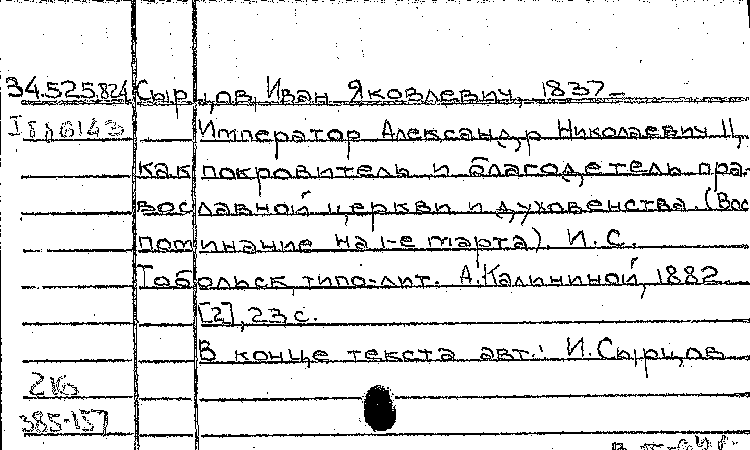 34.525.824 Сырцов, Иван Яковлевич, 1837–
Император Александр Николаевич II,
как покровитель и благодетель пра-
вославной церкви и духовенства. (Вос
поминание на 1-е марта). И.С.
Тобольск, типо-лит. А.Калининой, 1882
[2], 23 с.
В конце текста авт.: И.Сырцов
385-157